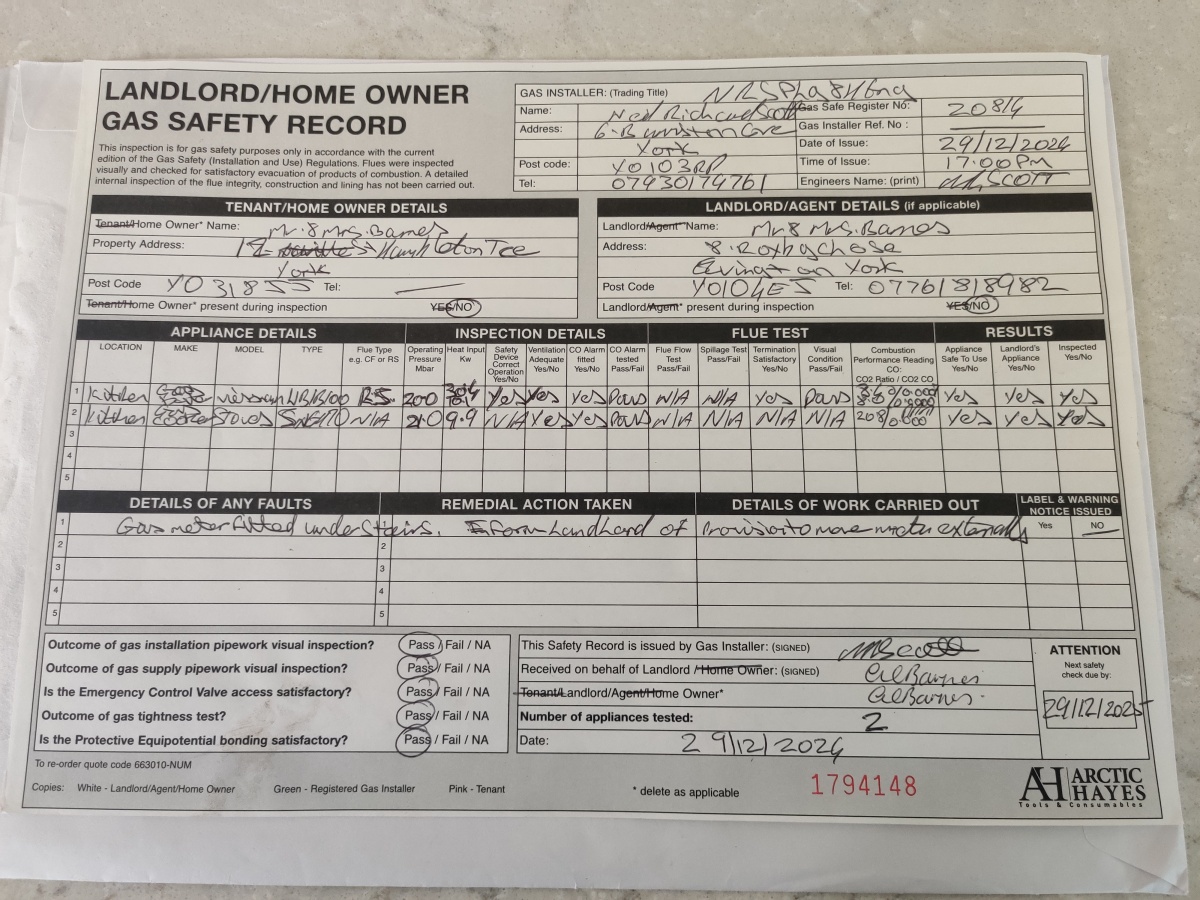 LANDLORD/HOME OWNER
GAS SAFETY RECORD
This inspection is for gas safety purposes only in accordance with the current
edition of the Gas Safety (Installation and Use) Regulations. Flues were inspected
visually and checked for satisfactory evacuation of products of combustion. A detailed
internal inspection of the flue integrity, construction and lining has not been carried out.
GAS INSTALLER: (Trading Title) NRS
Name: Richard Scott Gas Safe Register No: 20814
Address: 6 Gas Installer Ref. No :
York Date of Issue: 29/12/2024
Post code: YO103RP Time of Issue: 17:00 Pm
Tel: 07930174761 Engineers Name: (print) SCOTT
TENANT/HOME OWNER DETAILS
Tenant/Home Owner* Name: Mr & Mrs. Barnes
Property Address: Tce
York
Post Code YO31 8SS Tel:
Tenant/Home Owner* present during inspection YES/NO
LANDLORD/AGENT DETAILS (if applicable)
Landlord/Agent* Name: Mr & Mrs. Barnes
Address: 8
York
Post Code YO10 Tel: 07761818982
Landlord/Agent* present during inspection YES/NO
APPLIANCE DETAILS INSPECTION DETAILS FLUE TEST RESULTS
LOCATION MAKE MODEL TYPE Flue Type e.g. CF or RS Operating Pressure Mbar Heat Input Kw Safety Device Correct Operation Yes/No Ventilation Adequate Yes/No CO Alarm fitted Yes/No CO Alarm tested Pass/Fail Flue Flow Test Pass/Fail Spillage Test Pass/Fail Termination Satisfactory Yes/No Visual Condition Pass/Fail Combustion Performance Reading CO: CO2 Ratio / CO2 CO Appliance Safe To Use Yes/No Landlord's Appliance Yes/No Inspected Yes/No
1 Kitchen RS 20.0 Yes Yes Yes Pass N/A N/A Yes Pass Yes Yes Yes
2 Kitchen Cooker Stoves N/A 21.0 9.9 N/A Yes Yes Pass N/A N/A N/A N/A Yes Yes Yes
3
4
5
DETAILS OF ANY FAULTS REMEDIAL ACTION TAKEN DETAILS OF WORK CARRIED OUT LABEL & WARNING NOTICE ISSUED
1 Gas meter fitted under stairs. of Provision to move meter externally Yes NO
2 2
3 3
4 4
5 5
Outcome of gas installation pipework visual inspection? Pass / Fail / NA
Outcome of gas supply pipework visual inspection? Pass / Fail / NA
Is the Emergency Control Valve access satisfactory? Pass / Fail / NA
Outcome of gas tightness test? Pass / Fail / NA
Is the Protective Equipotential bonding satisfactory? Pass / Fail / NA
This Safety Record is issued by Gas Installer: (SIGNED)
Received on behalf of Landlord /Home Owner: (SIGNED) Barnes
Tenant/Landlord/Agent/Home Owner* Barnes
Number of appliances tested: 2
Date: 29/12/2024
ATTENTION
Next safety
check due by:
29/12/2025
To re-order quote code 663010-NUM
Copies: White - Landlord/Agent/Home Owner Green - Registered Gas Installer Pink - Tenant * delete as applicable 1794148
AH ARCTIC HAYES
Tools & Consumables